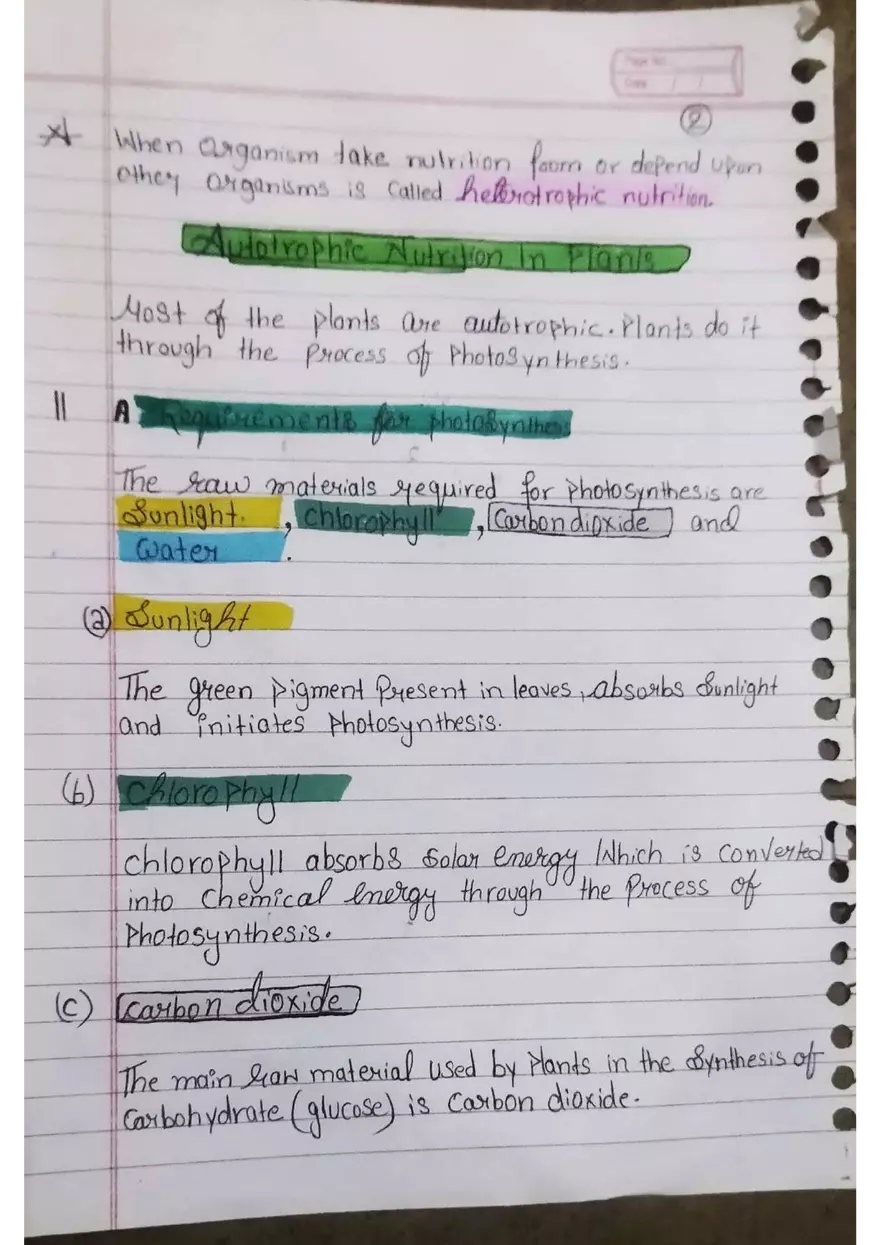 Page No.
Date / /
2
When organism take nutrition from or depend upon
other organisms is called heterotrophic nutrition.
Autotrophic Nutrition In Plants
Most of the plants are autotrophic. Plants do it
through the process of Photosynthesis.
11 A Requirements for photosynthesis
The raw materials required for photosynthesis are
Sunlight, Chlorophyll, Carbon dioxide and
Water.
(a) Sunlight
The green pigment Present in leaves, absorbs Sunlight
and initiates Photosynthesis.
(b) Chlorophyll
Chlorophyll absorbs Solar energy Which is converted
into Chemical energy through the Process of
Photosynthesis.
(c) Carbon dioxide
The main raw material used by Plants in the Synthesis of
Carbohydrate (glucose) is Carbon dioxide.